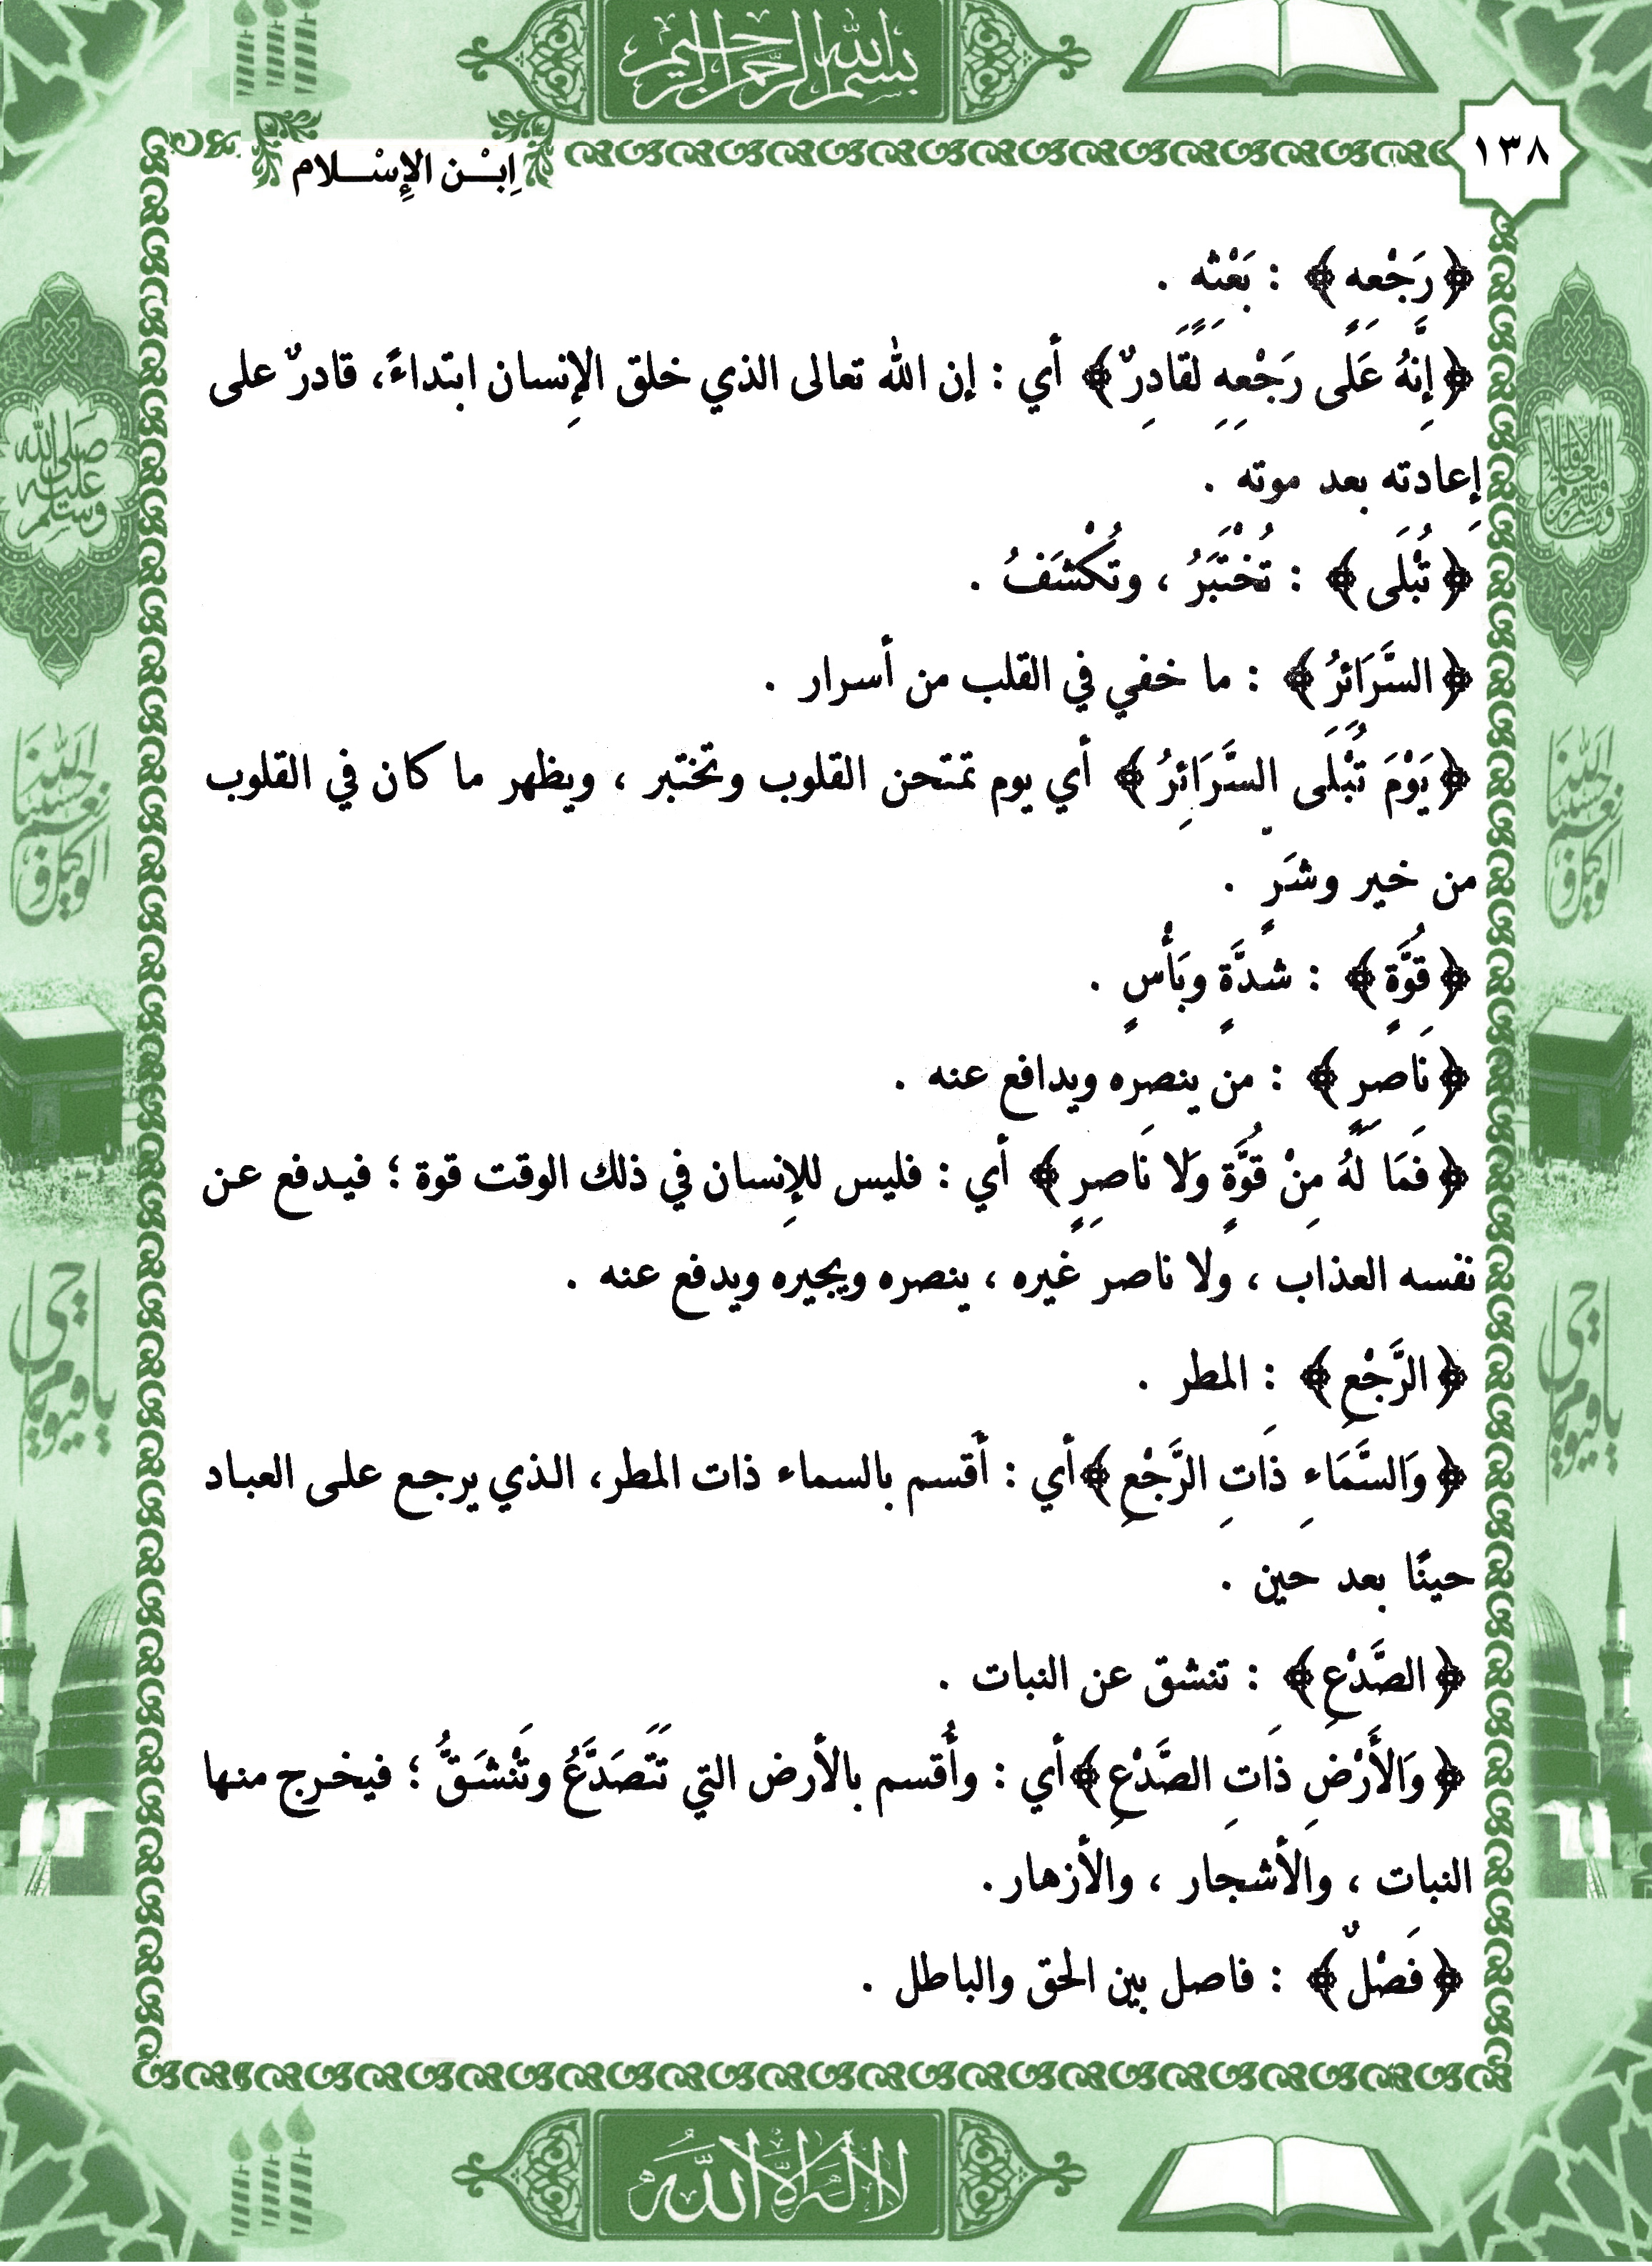 بسم الله الرحمن الرحيم
١٣٨
اِبْــن الإِسْــلام
﴿رَجْعِهِ﴾ : بَعْثِهِ .
﴿إِنَّهُ عَلَى رَجْعِهِ لَقَادِرٌ﴾ أي : إن الله تعالى الذي خلق الإِنسان ابتداءً، قادرٌ على
إِعادته بعد موته .
﴿تُبْلَى﴾ : تُخْتَبَرُ ، وتُكْشَفُ .
﴿السَّرَائِرُ﴾ : ما خفي في القلب من أسرار .
﴿يَوْمَ تُبْلَى السَّرَائِرُ﴾ أي يوم تمتحن القلوب وتختبر ، ويظهر ما كان في القلوب
من خير وشَرٍ .
﴿قُوَّةٍ﴾ : شدَّةٍ وبَأْسٍ .
﴿نَاصِرٍ﴾ : من ينصره ويدافع عنه .
﴿فَمَا لَهُ مِنْ قُوَّةٍ وَلا نَاصِرٍ﴾ أي : فليس للإِنسان في ذلك الوقت قوة ؛ فيـدفع عـن
نفسه العذاب ، ولا ناصر غيره ، ينصره ويجيره ويدفع عنه .
﴿الرَّجْعِ﴾ : المطر .
﴿وَالسَّمَاءِ ذَاتِ الرَّجْعِ﴾أي : أُقسم بالسماء ذات المطر، الـذي يرجـع علـى العبـاد
حينًا بعد حين .
﴿الصَّدْعِ﴾ : تنشق عن النبات .
﴿وَالأَرْضِ ذَاتِ الصَّدْعِ﴾أي : وأُقسم بالأرض التي تَتَصَدَّعُ وتَنْشَـقُّ ؛ فيخـرج منـها
النبات ، والأشجار ، والأزهار.
﴿فَصْلٌ﴾ : فاصل بين الحق والباطل .
صلى الله عليه وسلم
حسبنا الله ونعم الوكيل
يا حي يا قيوم
لا إله إلا الله